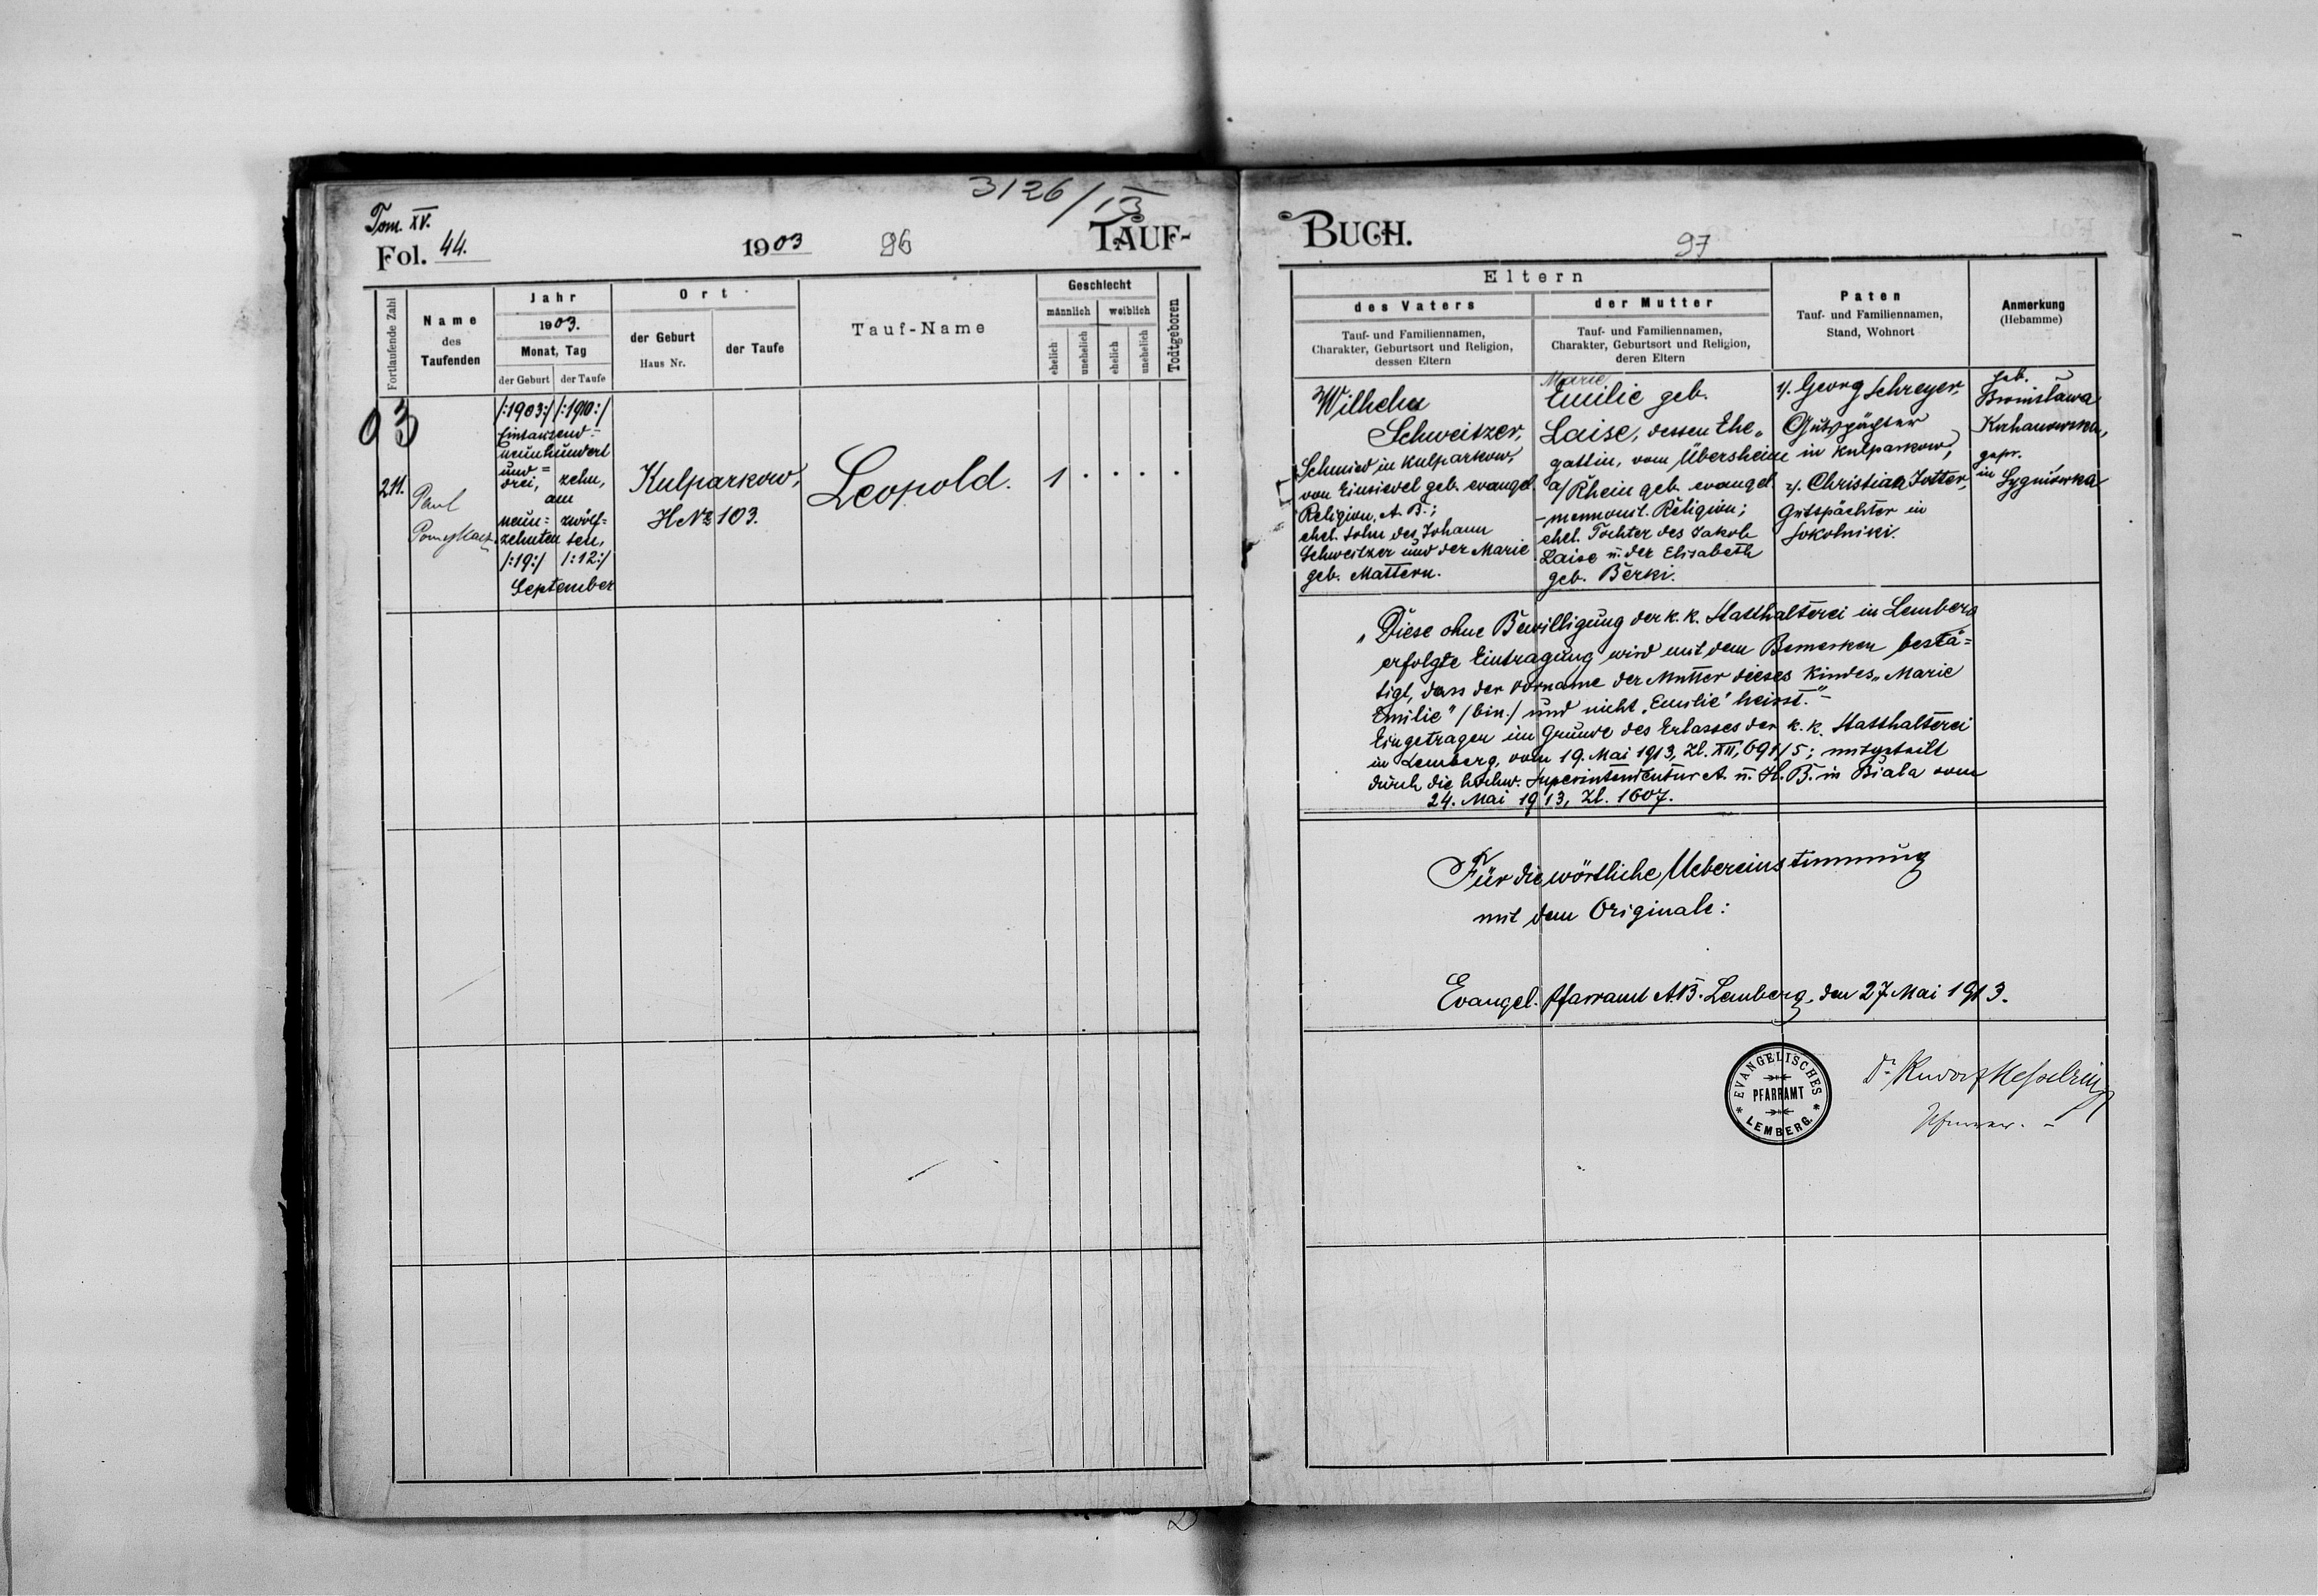 3126/13
Tom. XV.
Fol. 44.
1903
96
TAUF-
Fortlaufende Zahl
Name
des
Taufenden
Jahr
1903.
Monat, Tag
der Geburt
der Taufe
Ort
der Geburt
Haus Nr.
der Taufe
Tauf-Name
Geschlecht
männlich
weiblich
ehelich
unehelich
ehelich
unehelich
Todtgeboren
03
211.
Paul
/:1903:/ /:1910:/
Eintausend-
neunhundert
und =
drei, zehn,
am
neun= zwölf=
zehnten ten,
/:19:/ /:12:/
September
Kulparkow,
H№ 103.
Leopold.
1 . . . .
BUCH.
97
Eltern
des Vaters
Tauf- und Familiennamen,
Charakter, Geburtsort und Religion,
dessen Eltern
der Mutter
Tauf- und Familiennamen,
Charakter, Geburtsort und Religion,
deren Eltern
Paten
Tauf- und Familiennamen,
Stand, Wohnort
Anmerkung
(Hebamme)
Wilhelm
Schweitzer,
Schmied in Kulparkow,
von Einsiedel geb. evangel.
Religion, A. B.;
ehel. Sohn des Johann
Schweitzer und der Marie
geb. Mattern.
Marie
Emilie geb.
Laise, dessen Ehe„
gattin, vom Übersheim
a/Rhein geb. evangel.
-mennonit. Religion;
ehel. Tochter des Jakob
Laise u. der Elisabeth
geb. Berki.
1/. Georg Schreyer,
Gutspächter
in Kulparkow,
2/. Christian Jotter,
Gutspächter in
Sokolniki.
Heb.
Bronisława
gepr.
in Sygniówka
„Diese ohne Bewilligung der k. k. Statthalterei in Lemberg
erfolgte Eintragung wird mit dem Bemerken bestä=
tigt, dass der Vorname der Mutter dieses Kindes „Marie
Emilie" /bin./ und nicht „Emilie" heisst."-
Eingetragen im Grunde des Erlasses der k. k. Statthalterei
in Lemberg, vom 19. Mai 1913, Zl. XII, 691/5; mitgeteilt
durch die hochw. Superintendentur A. u. H. B. in Biala vom
24. Mai 1913, Zl. 1607.
Für die wörtliche Uebereinstimmung
mit dem Originale:
Evangel. Pfarramt A.B. Lemberg, den 27. Mai 1913.
EVANGELISCHES
PFARRAMT
LEMBERG.
Dr Rudolf Kesselring
Pfarrer. -